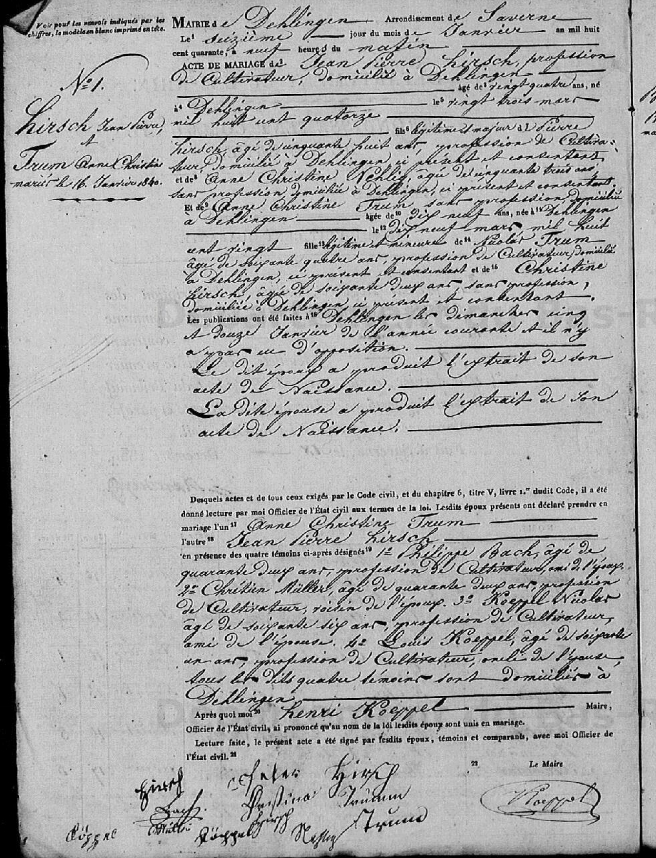 Voir pour les renvois indiqués par les
chiffres, le modèle en blanc imprimé en tête.
N.° 1.
Hirsch Jean Pierre,
et
Trum Anne Christine
mariés le 16 Janvier 1840.
MAIRIE de Dehlingen Arrondissement de Saverne
Le seizième jour du mois de Janvier an mil huit
cent quarante, à neuf heures du matin
ACTE DE MARIAGE de Jean Pierre Hirsch, profession
de Cultivateur, domicilié à Dehlingen
âgé de vingt quatre ans, né
à Dehlingen le vingt trois mars
mil huit cent quatorze
fils légitime et majeur de Pierre
Hirsch, âgé de cinquante huit ans, profession de Cultiva-
teur, domicilié à Dehlingen, ci présent et consentant
et de Anne Christine âgée de cinquante trois ans
sans profession, domiciliée à Dehlingen, ci présent et consentant
Et de Anne Christine Trum sans profession, domiciliée
à Dehlingen âgée de dix neuf ans, née à Dehlingen
le dix neuf mars mil huit
cent vingt fille légitime et mineure de Nicolas Trum
âgé de soixante quatre ans, profession de Cultivateur, domicilié
à Dehlingen, ci présent et consentant et de Christine
Hirsch, âgée de soixante deux ans, sans profession,
domiciliée à Dehlingen, ci présent et consentant.
Les publications ont été faites à Dehlingen les dimanches cinq
et douze Janvier de l'année courante et il n'y
a pas eu d'opposition.
Le dit époux a produit l'extrait de son
acte de Naissance.
La dite épouse a produit l'extrait de son
acte de Naissance.
Desquels actes et de tous ceux exigés par le Code civil, et du chapitre 6, titre V, livre 1.er dudit Code, il a été
donné lecture par moi Officier de l'État civil aux termes de la loi. Lesdits époux présents ont déclaré prendre en
mariage l'un Anne Christine Trum
l'autre Jean Pierre Hirsch
en présence des quatre témoins ci-après désignés 1.° Philippe Bach, âgé de
quarante deux ans, profession de Cultivateur, ami de l'époux.
2.° Chrétien Müller, âgé de quarante deux ans, profession
de Cultivateur, voisin de l'époux. 3.° Koeppel Nicolas
âgé de soixante six ans, profession de Cultivateur,
ami de l'épouse. 4.° Louis Koeppel, âgé de soixante
un ans, profession de Cultivateur, oncle de l'épouse,
tous les dits quatre témoins sont domiciliés à
Dehlingen
Après quoi moi Henri Koeppel Maire,
Officier de l'État civil, ai prononcé qu'au nom de la loi lesdits époux sont unis en mariage.
Lecture faite, le présent acte a été signé par lesdits époux, témoins et comparants, avec moi Officier de
l'État civil.
Le Maire
Hirsch Peter Hirsch
Bach Kristina Trumm Koeppel
Müller Hirsch
Köppel Köppel Trum